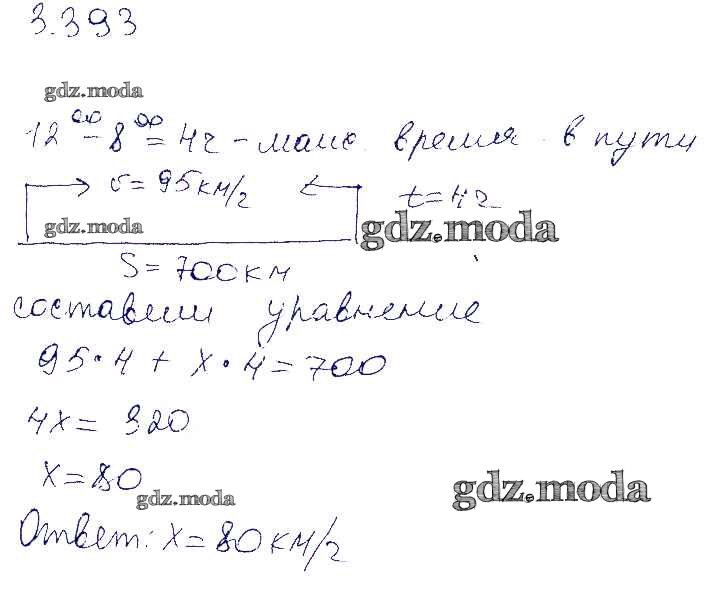 3.393
gdz.moda
12⁰⁰ - 8⁰⁰ = 4ч - время в пути
υ = 95 км/ч
t = 4ч
gdz.moda
gdz.moda
S = 700 км
составим уравнение
95 · 4 + x · 4 = 700
4x = 320
x = 80
gdz.moda
gdz.moda
Ответ: x = 80 км/ч